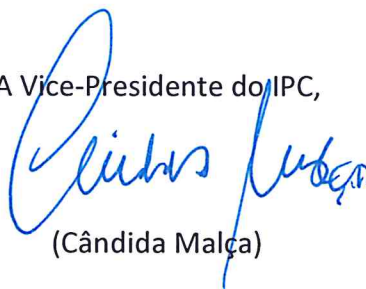 A Vice-Presidente do IPC,
(Cândida Malça)